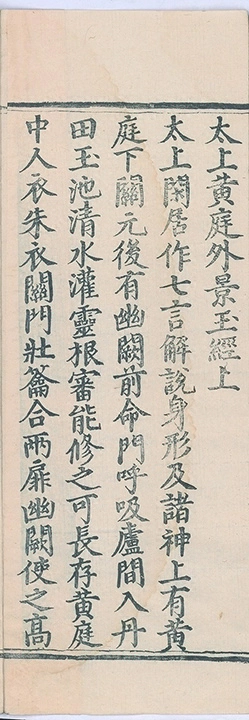 太上黃庭外景玉經上
太上閑居作七言解說身形及諸神上有黃
庭下關元後有幽闕前命門呼吸廬間入丹
田玉池清水灌靈根審能修之可長存黃庭
中人衣朱衣關門壯籥合兩扉幽闕使之高